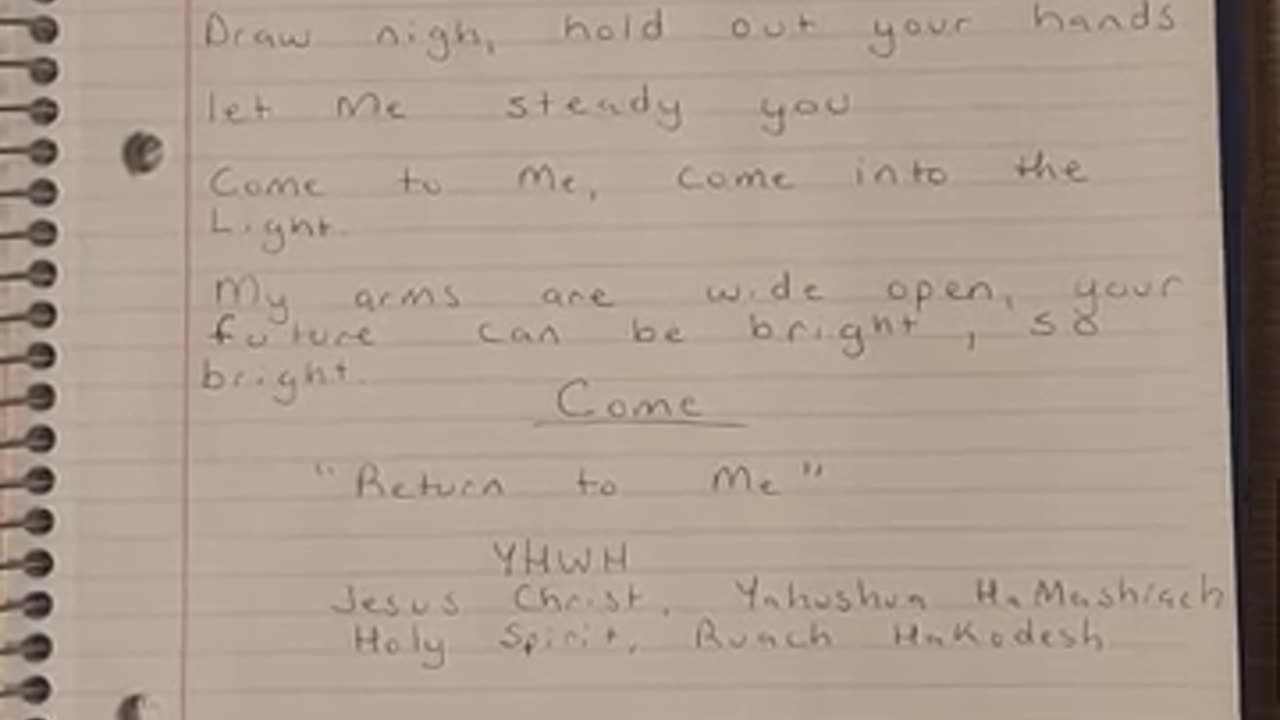 Draw nigh, hold out your hands
let Me steady you
Come to Me, come into the
Light.
My arms are wide open, your
future can be bright, so
bright.
Come
"Return to Me"
YHWH
Jesus Christ, Yahushua HaMashiach
Holy Spirit, Ruach HaKodesh